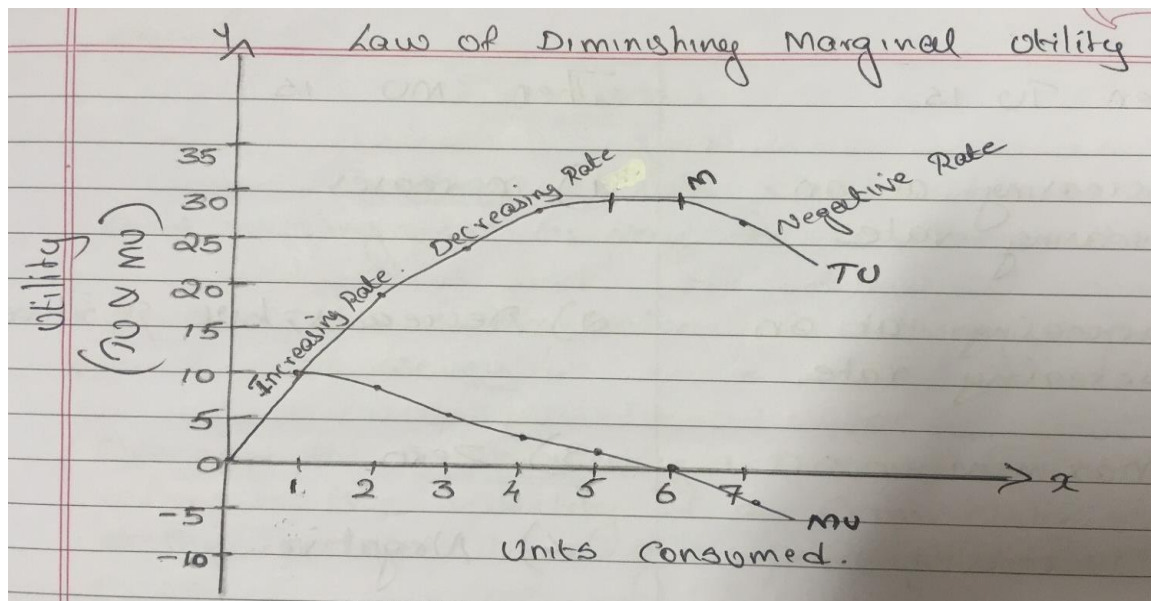 Y
Law of Diminshing Marginal Utility
35
30
25
20
15
10
5
0
-5
-10
Utility
(TU & MU)
Increasing Rate.
Decreasing Rate
M
Negative Rate
TU
1. 2 3 4 5 6 7
x
MU
Units Consumed.